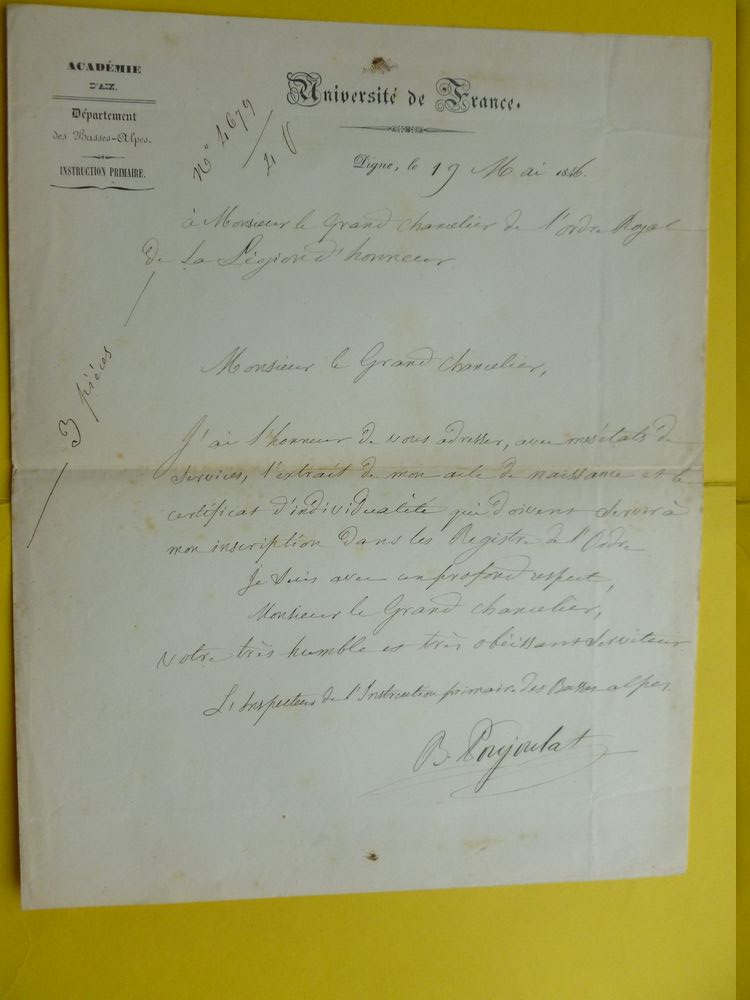 ACADÉMIE
D'AIX.
Département
des Basses-Alpes.
INSTRUCTION PRIMAIRE.
Université de France.
N° 4679
Digne, le 19 Mai 1846.
à Monsieur le Grand chancelier de l'ordre Royal
de la Légion d'honneur
3 pièces
Monsieur le Grand chancelier,
J'ai l'honneur de vous adresser, avec mes états de
services, l'extrait de mon acte de naissance et le
certificat d'individualité qui doivent servir à
mon inscription dans les Registre de l'Ordre
Je suis avec un profond respect,
Monsieur le Grand chancelier,
votre très humble et très obéissant serviteur
L'Inspecteur de l'Instruction primaire des Basses alpes
B. Poujoulat